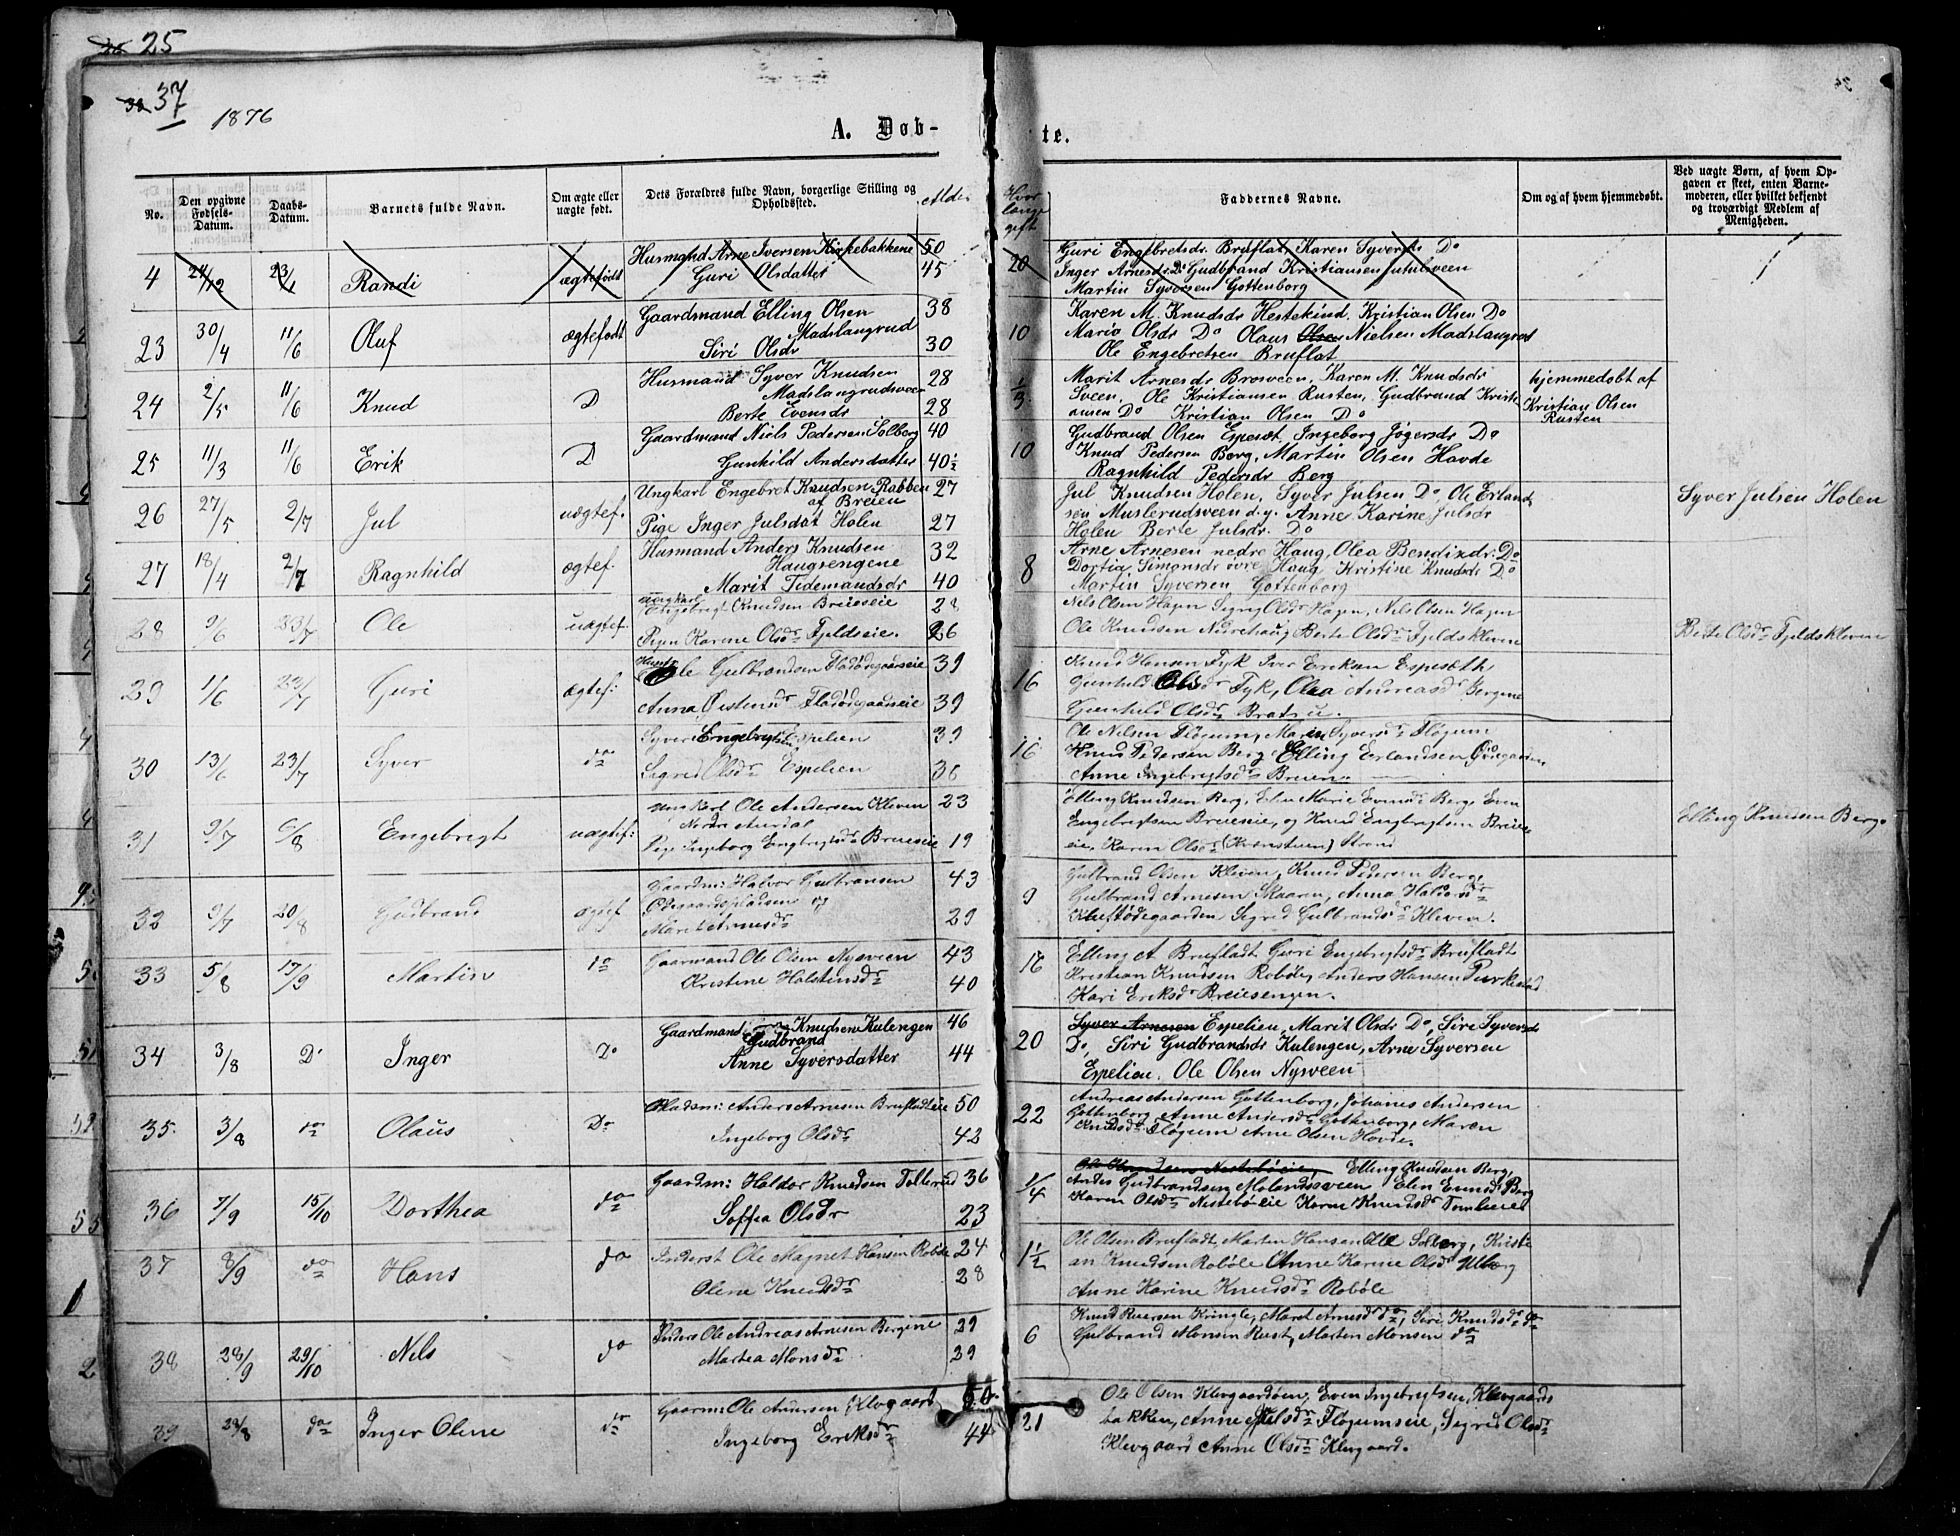 25
37
1876
A. Døb-
te.
No.
Den opgivne Fødsels-Datum.
Daabs-Datum.
Barnets fulde Navn.
Om ægte eller uægte født.
Dets Forældres fulde Navn, borgerlige Stilling og Opholdssted.
Alder
Hvor længe gift
Faddernes Navne.
Om og af hvem hjemmedøbt.
Ved uægte Børn, af hvem Opgaven er skeet, enten Barnemoderen, eller hvilket bekjendt og troværdigt Medlem af Menigheden.
4 21/12 23/1 Randi ægtefødt
Husmand Arne Iversen Kirkebakkene 50
Guri Olsdatter 45
20
Guri Engebretsdr. Bruflat, Karen Syversdr Do
Inger Arnesdr. Do Gudbrand Kristiansen Jutulsveen
Martin Syversen Gottenborg
23 30/4 11/6 Oluf ægtefødt
Gaardmand Elling Olsen 38
Madslangrud
Siri Olsdr 30
10
Karen M. Knudsdr Hestekind, Kristian Olsen Do
Maria Olsdr Do Olaus Olsen Nielsen Madslangrud
Ole Engebretsen Bruflat
24 2/5 11/6 Knud D
Husmand Syver Knudsen 28
Madslangrudsveen
Berte Evensdr 28
1/3
Marit Arnesdr Brosveen, Karen M. Knudsdr
Sveen, Ole Kristiansen Rusten, Gudbrand Kristi-
ansen Do Kristian Olsen Do
hjemmedøbt af
Kristian Olsen
Rusten
25 11/3 11/6 Erik D
Gaardmand Niels Pedersen Solberg 40
Gunhild Andersdatter 40½
10
Gudbrand Olsen Espesæt, Ingeborg Jøgersdr Do
Knud Pedersen Berg, Martin Olsen Hovde
Ragnhild Pedersdr Berg
26 27/5 2/7 Jul uægtef.
Ungkarl Engebret Knudsen Rabben 27
af Breien
Pige Inger Julsdat Holen 27
Jul Knudsen Holen, Syver Julsen Do Ole Erland-
sen Muslerudsveen d.y. Anne Karine Julsdr
Holen Berte Julsdr. Do
Syver Julsen Holen
27 18/4 2/7 Ragnhild ægtef.
Husmand Anders Knudsen 32
Haugsengene
Marit Tidemandsdr 40
8
Arne Arnesen nedre Haug, Olea Bendixdr. Do
Dortia Simonsdr øvre Haug, Kristine Knudsdr Do
Martin Syversen Gottenborg
28 9/6 23/7 Ole uægtef.
Ungkarl
Engebrigt Knudsen Breieseie 28
Pigen Karine Olsdr Fjeldseie. 26
Nels Olsen Hagen Segri Olsdr Hagen, Nils Olsen Hagen
Ole Knudsen Nedrehaug Berte Olsdr Fjeldskleven
Berte Olsdr Fjeldskleven
29 1/6 23/7 Guri ægtef:
Ole Gulbrandsen Fladødegaardseie 39
Anna Østensdr Fladødegaardseie 39
16
Knud Hansen Fyk Iver Eriksen Espesæth
Gunhild Olsdr Fyk, Olea Andreasdr Bergene
Gunhild Olsdr
30 13/6 23/7 Syver do
Syver Engebrigtsen Espelien 39
Segred Olsdr Espelien 38
16
Ole Nelsen Fløgum, Maren Syversdr Fløgum
Knud Pedersen Berg Elling Erlandsen Ødegaarden
Anne Ingebrigtsdr Breien
31 9/7 6/8 Engebregt uægtef:
Ungkarl Ole Andersen Kleven 23
Nordre Aurdal
Pige Ingeborg Engbrigtsdr Breieseie 19
Elling Knudsen Berg, Elin Marie Evensdr Berg, Even
Engebrigtsen Breieseie, og Knud Engbrigtsen Breies-
eie, Karen Olsdr
Elling Knudsen Berg.
32 9/7 20/8 Gudbrand ægtef
Gaardm: Halvor Gulbransen 43
Ødegaardspladsen og
Marit Arnesdr 29
9
Gulbrand Olsen Kleven, Knud Pedersen Berg,
Gulbrand Arnesen Skaaren, Anna Haldorsdr
Kluftødegaarden Segred Gulbrandsdr Kleven.
33 5/8 17/9 Martin do
Gaarmand Ole Olsen Nysveen 43
Kristine Halstensdr 40
18
Elling A Brufladt Guri Engebrigtsdr Brufladt
Kristian Knudsen Robøle, Anders Hansen Purkestad
Kari Eriksdr Breiesengen.
34 3/8 Do Inger Do
Gaardmand Gudbrand Knudsen Kulengen 46
Anne Syversdatter 44
20
Syver Arnesen Espelien, Marit Olsdr Do, Siri Syversdr
Do, Siri Gudbrandsdr Kulengen, Arne Syversen
Espelien. Ole Olsen Nysveen
35. 3/8 do Olaus Do
Pladsm: Anders Arnesen Brufladteie 50
Ingeborg Olsdr 42
22
Andreas Andersen Gottenborg, Johanes Andersen
Gottenborg, Anne Andersdr Gottenborg, Maren
Knudsdr Fløgum Arne Olsen Hovde.
36 7/9 15/10 Dorthea do
Gaardm: Haldor Knudsen Tollerud 36
Soffea Olsdr 23
1/4
Elling Knudsen Berg,
Andes Gudbrandsen Molandsveen Elen Evensdr Berg
Karen Olsdr Nestebøeie Karen Knudsdr
37 8/9 do Hans do
Inderst Ole Magnet Hansen Robøle 24
Olene Knudsdr 28
1½
Ole Olsen Brufladt, Marten Hansen Solberg, Kristi-
an Knudsen Robøle Anne Karine Olsdr
Anne Karine Knudsdr Robøle
38 28/9 29/10 Nels do
Inders Ole Andreas Arnesen Bergene 29
Martea Monsdr 29
6
Knud Iversen Kringle, Maret Arnesdr do, Siri Knudsdr do
Gulbrand Monsen Rust, Marten Monsen do
39 29/8 do Inger Olene do
Gaarm: Ole Andersen Klevgaard 50
Ingeborg Eriksdr 44
21
Ole Olsen Klevgaardøen, Even Ingebrigtsen, Klevgaards-
bakken, Anne Nelsdr Fløgumseie, Segred Olsdr
Klevgaard Anne Olsdr Klevgaard.